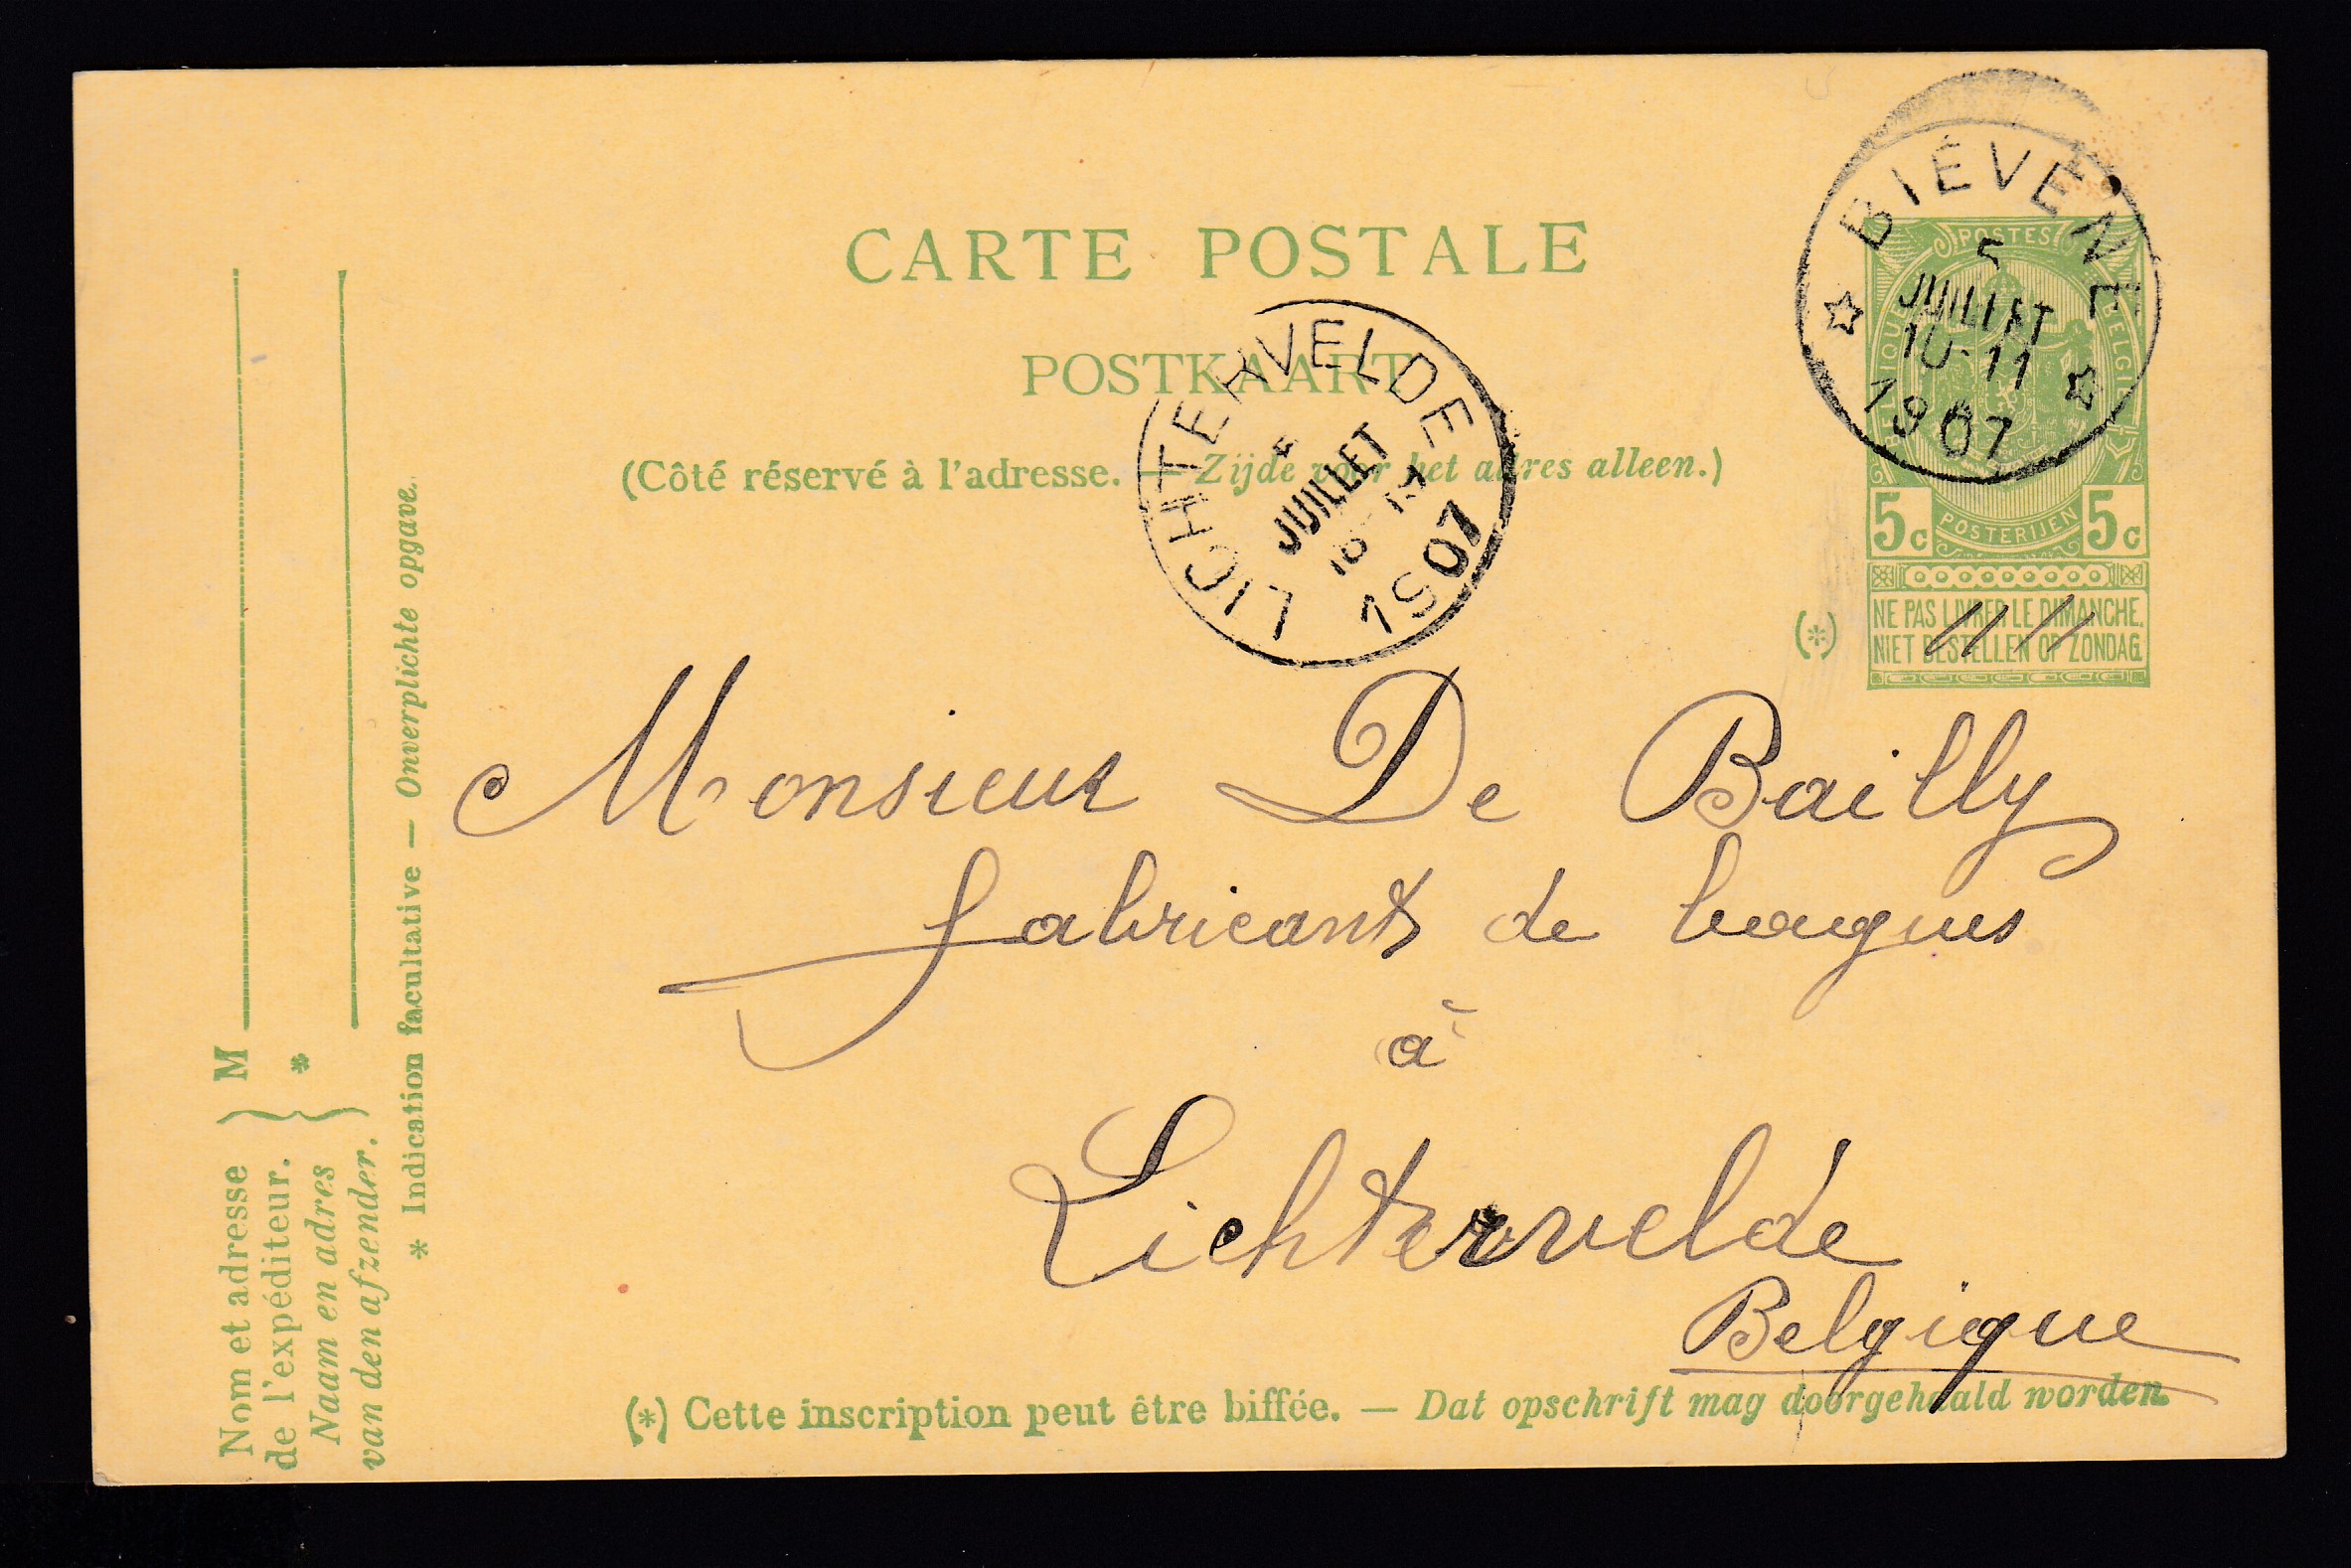 CARTE POSTALE
POSTKAART
(Côté réservé à l'adresse. — Zijde voor het adres alleen.)
BIÉVÈNE
5
JUILLET
10-11
1907
LICHTERVELDE
JUILLET
1907
POSTES
BELGIQUE BELGIË
5c POSTERIJEN 5c
(*) NE PAS LIVRER LE DIMANCHE.
NIET BESTELLEN OP ZONDAG.
Monsieur De Bailly
fabricant de
à
Lichtervelde
Belgique
(*) Cette inscription peut être biffée. — Dat opschrift mag doorgehaald worden.
Nom et adresse
de l'expéditeur.
} M
Naam en adres
van den afzender.
{ *
* Indication facultative — Onverplichte opgave.